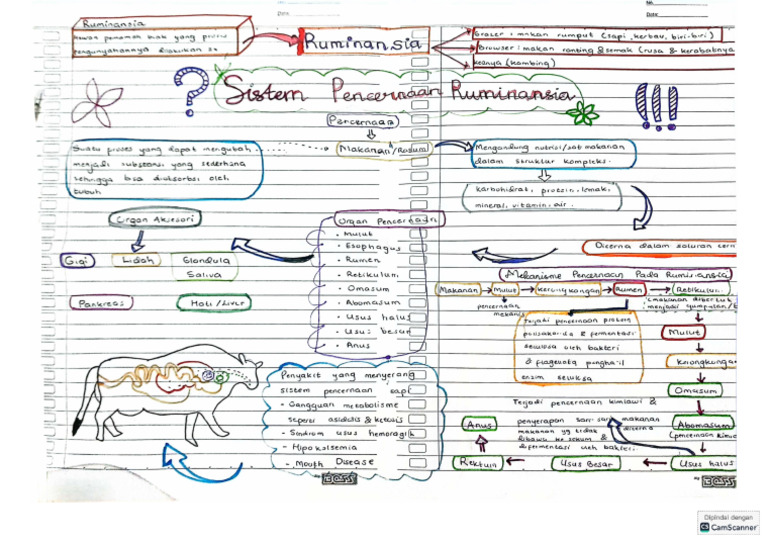 No.
Date
Ruminansia
Hewan pemamah biak yang proses
pengunyahannya dilakukan 2x
Ruminansia
Grazer : makan rumput (sapi, kerbau, biri-biri)
browser : makan ranting & semak (rusa & kerabatnya
(kambing)
Sistem Pencernaan Ruminansia
Pencernaan
Suatu proses yang dapat mengubah
menjadi substansi yang sederhana
sehingga bisa diabsorbsi oleh
tubuh
Makanan/Ransum
Mengandung nutrisi/zat makanan
dalam struktur kompleks.
karbohidrat, protein, lemak,
mineral, vitamin, air.
Dicerna dalam saluran
Organ Aksesori
Gigi
Lidah
Glandula
Saliva
Pankreas
Hati/Liver
Organ Pencernaan
- Mulut
- Esophagus
- Rumen
- Retikulum
- Omasum
- Abomasum
- Usus halus
- Usus besar
- Anus
Mekanisme Pencernaan Pada Ruminansia
Makanan
Mulut
Kerongkongan
Rumen
Retikulum
pencernaan
mekanis
(makanan dibentuk
menjadi gumpalan/
Terjadi pencernaan protein
polisakarida & fermentasi
selulosa oleh bakteri
& flagellata penghasil
enzim selulosa
Mulut
Kerongkongan
Omasum
Terjadi pencernaan kimiawi &
penyerapan sari-sari makanan
makanan yg tidak dicerna
dibawa ke sekum &
difermentasi oleh bakteri.
Abomasum
(pencernaan kimia
Anus
Rektum
Usus Besar
Usus halus
Penyakit yang menyerang
sistem pencernaan sapi
- Gangguan metabolisme
seperti asidosis & ketosis
- Sindrom usus hemoragik
- Hipokalsemia
- Mouth Disease
BOSS
BOSS
Dipindai dengan
CamScanner